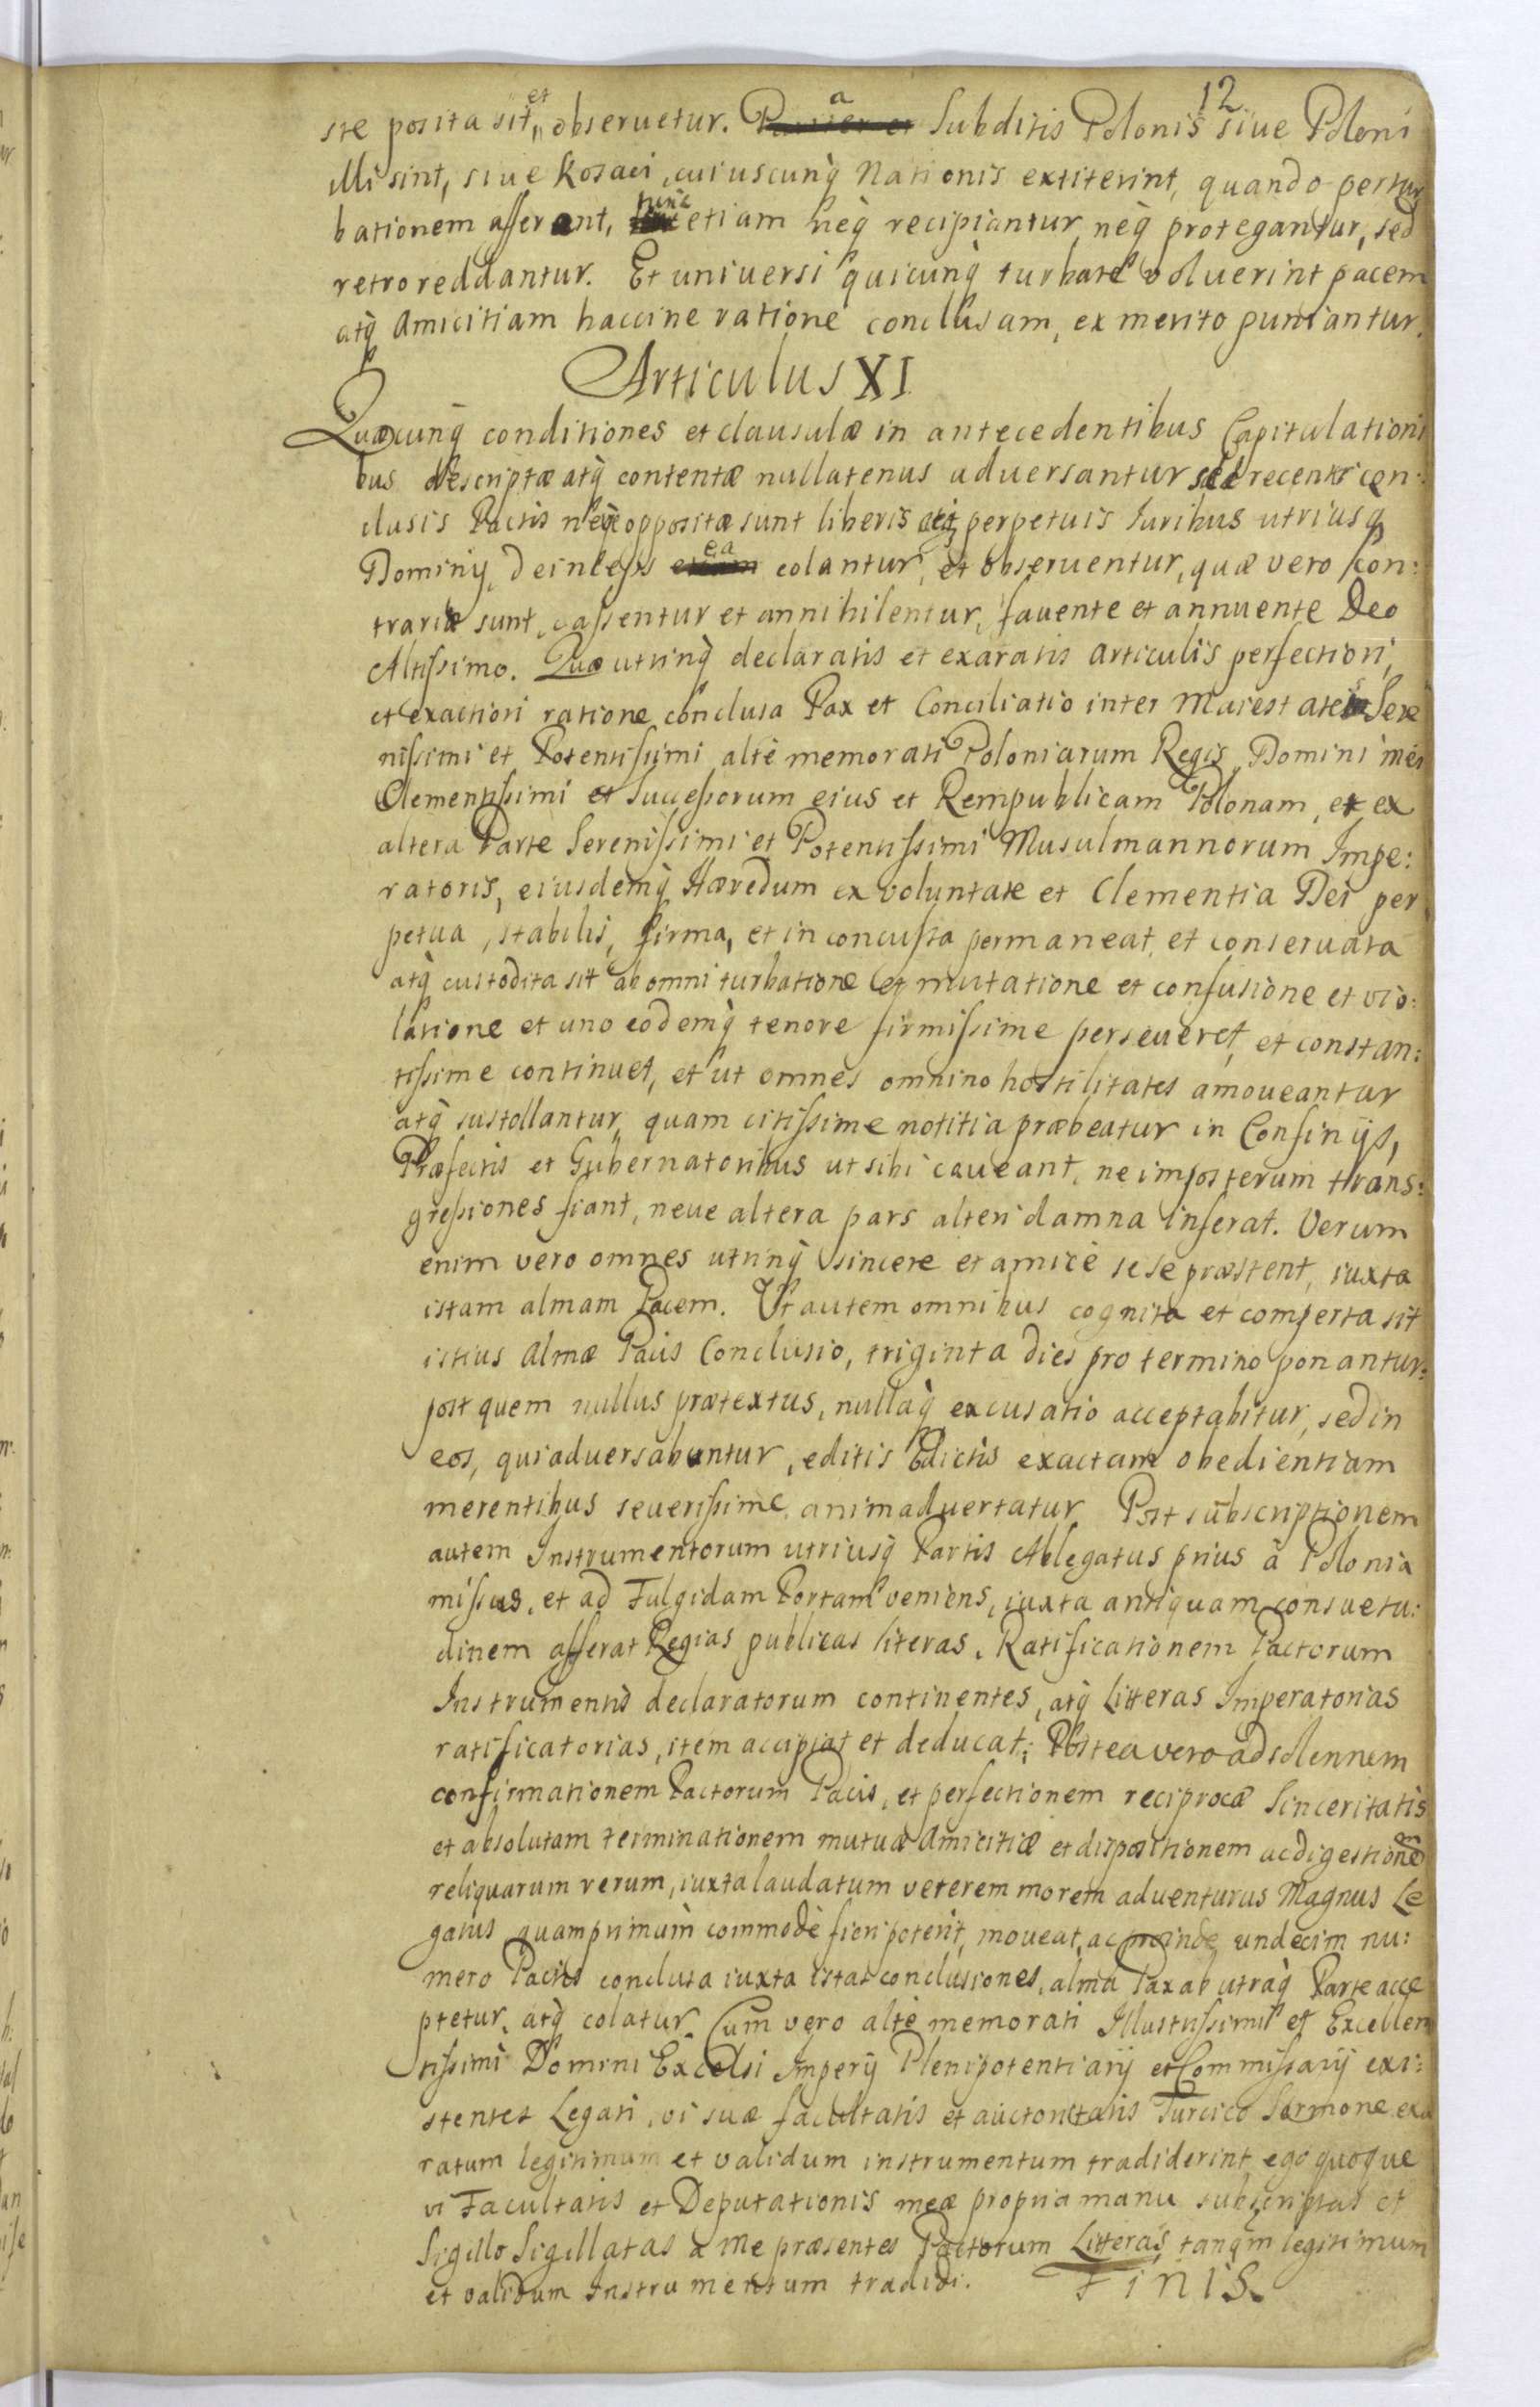 12
ste posita sit, et obseruetur. Pariter et a Subditis Polonis siue Poloni
illi sint, siue Kosaci, cuiuscunq̀ Nationis extiterint, quando pertur
bationem afferant, tunc etiam neq̀ recipiantur, neq̀ protegantur, sed
retro reddantur. Et uniuersi quicunq̀ turbare voluerint pacem
atq̀ Amicitiam haccine ratione conclusam, ex merito puniantur.
Articulus XI
Quæcunq̀ conditiones et clausulæ in antecedentibus Capitulationi
bus descriptæ atq̀ contentæ nullatenus aduersantur sed recenter con:
clusis Pactis neq̀ oppositæ sunt liberis atq̀ perpetuis Iuribus utriusq̀
Dominij, deinceps ea colantur, et obseruentur, quæ vero con:
trariæ sunt, cassentur et annihilentur, fauente et annuente Deo
Altissimo. Quæ utrinq̀ declaratis et exaratis Articulis perfectiori,
et exactiori ratione conclusa Pax et Conciliatio inter Maiestates Sere
nissimi et Potentissimi altè memorati Poloniarum Regis, Domini mei
Clementissimi et Successorum eius et Rempublicam Polonam, et ex
altera Parte Serenissimi et Potentissimi Musulmannorum Impe:
ratoris, eiusdemq̀ Hæredum ex voluntate et Clementia Dei per
petua, stabilis, firma, et inconcussa permaneat, et conseruata
atq̀ custodita sit ab omni turbatione et mutatione et confusione et vio:
latione et uno eodemq̀ tenore firmissime perseueret, et constan:
tissime continuet, et ut omnes omnino hostilitates amoueantur
atq̀ sustollantur, quam citissime notitia præbeatur in Confinijs,
Præfectis et Gubernatoribus ut sibi caueant, ne imposterum trans:
gressiones fiant, neue altera pars alteri damna inferat. Verum
enim vero omnes utrinq̀ sincere et amicè sese præstent, iuxta
istam almam Pacem. Ut autem omnibus cognita et comperta sit
istius Almæ Pacis Conclusio, triginta dies pro termino ponantur:
post quem nullus prætextus, nullaq̀ excusatio acceptabitur, sed in
eos, qui aduersabuntur, editis Edictis exactam obedientiam
merentibus seuerissime animaduertatur. Post subscriptionem
autem Instrumentorum utriusq̀ Partis Ablegatus prius à Polonia
missus, et ad Fulgidam Portam veniens, iuxta antiquam consuetu:
dinem afferat Regias publicas literas, Ratificationem Pactorum
Instrumentis declaratorum continentes, atq̀ Litteras Imperatorias
ratificatorias, item accipiat et deducat; Postea vero ad solennem
confirmationem Pactorum Pacis, et perfectionem reciprocæ Sinceritatis
et absolutam terminationem mutuæ Amicitiæ et dispositionem ac digestionem
reliquarum rerum, iuxta laudatum veterem morem aduenturus Magnus Le
gatus quamprimum commodè fieri poterit, moueat, ac proinde undecim nu:
mero Pactis conclusa iuxta istas conclusiones, alma Pax ab utraq̀ Parte acce
ptetur, atq̀ colatur. Cum vero altè memorati Illustrissimi et Excellen
tissimi Domini Excelsi Imperij Plenipotentiarij et Commissarij exi:
stentes Legati, vi suæ facultatis et auctoritatis Turcico Sermone exa
ratum legitimum et validum instrumentum tradiderint, ego quoque
vi Facultatis et Deputationis meæ propria manu subscriptas et
Sigillo Sigillatas à me præsentes Pactorum Litteras, tanq̀m legitimum
et validum Instrumentum tradidi. Finis.